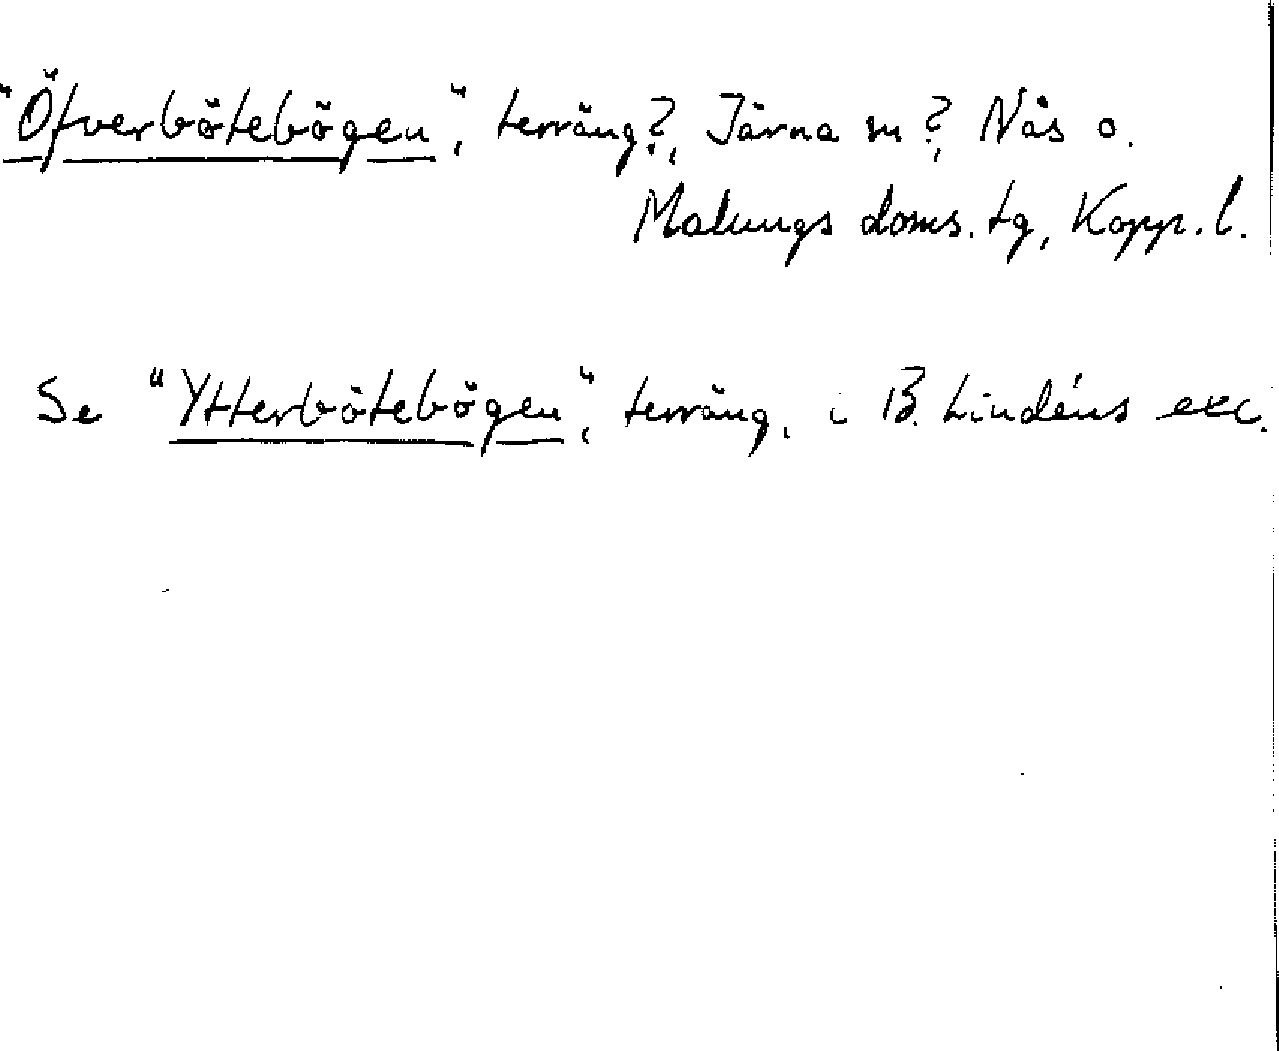 "Öfverbötebögen", terräng?, Järna sn?, Nås o.
Malungs doms. tg, Kopp. l.
Se "Ytterbötebögen", terräng, i B. Lindéns exc.